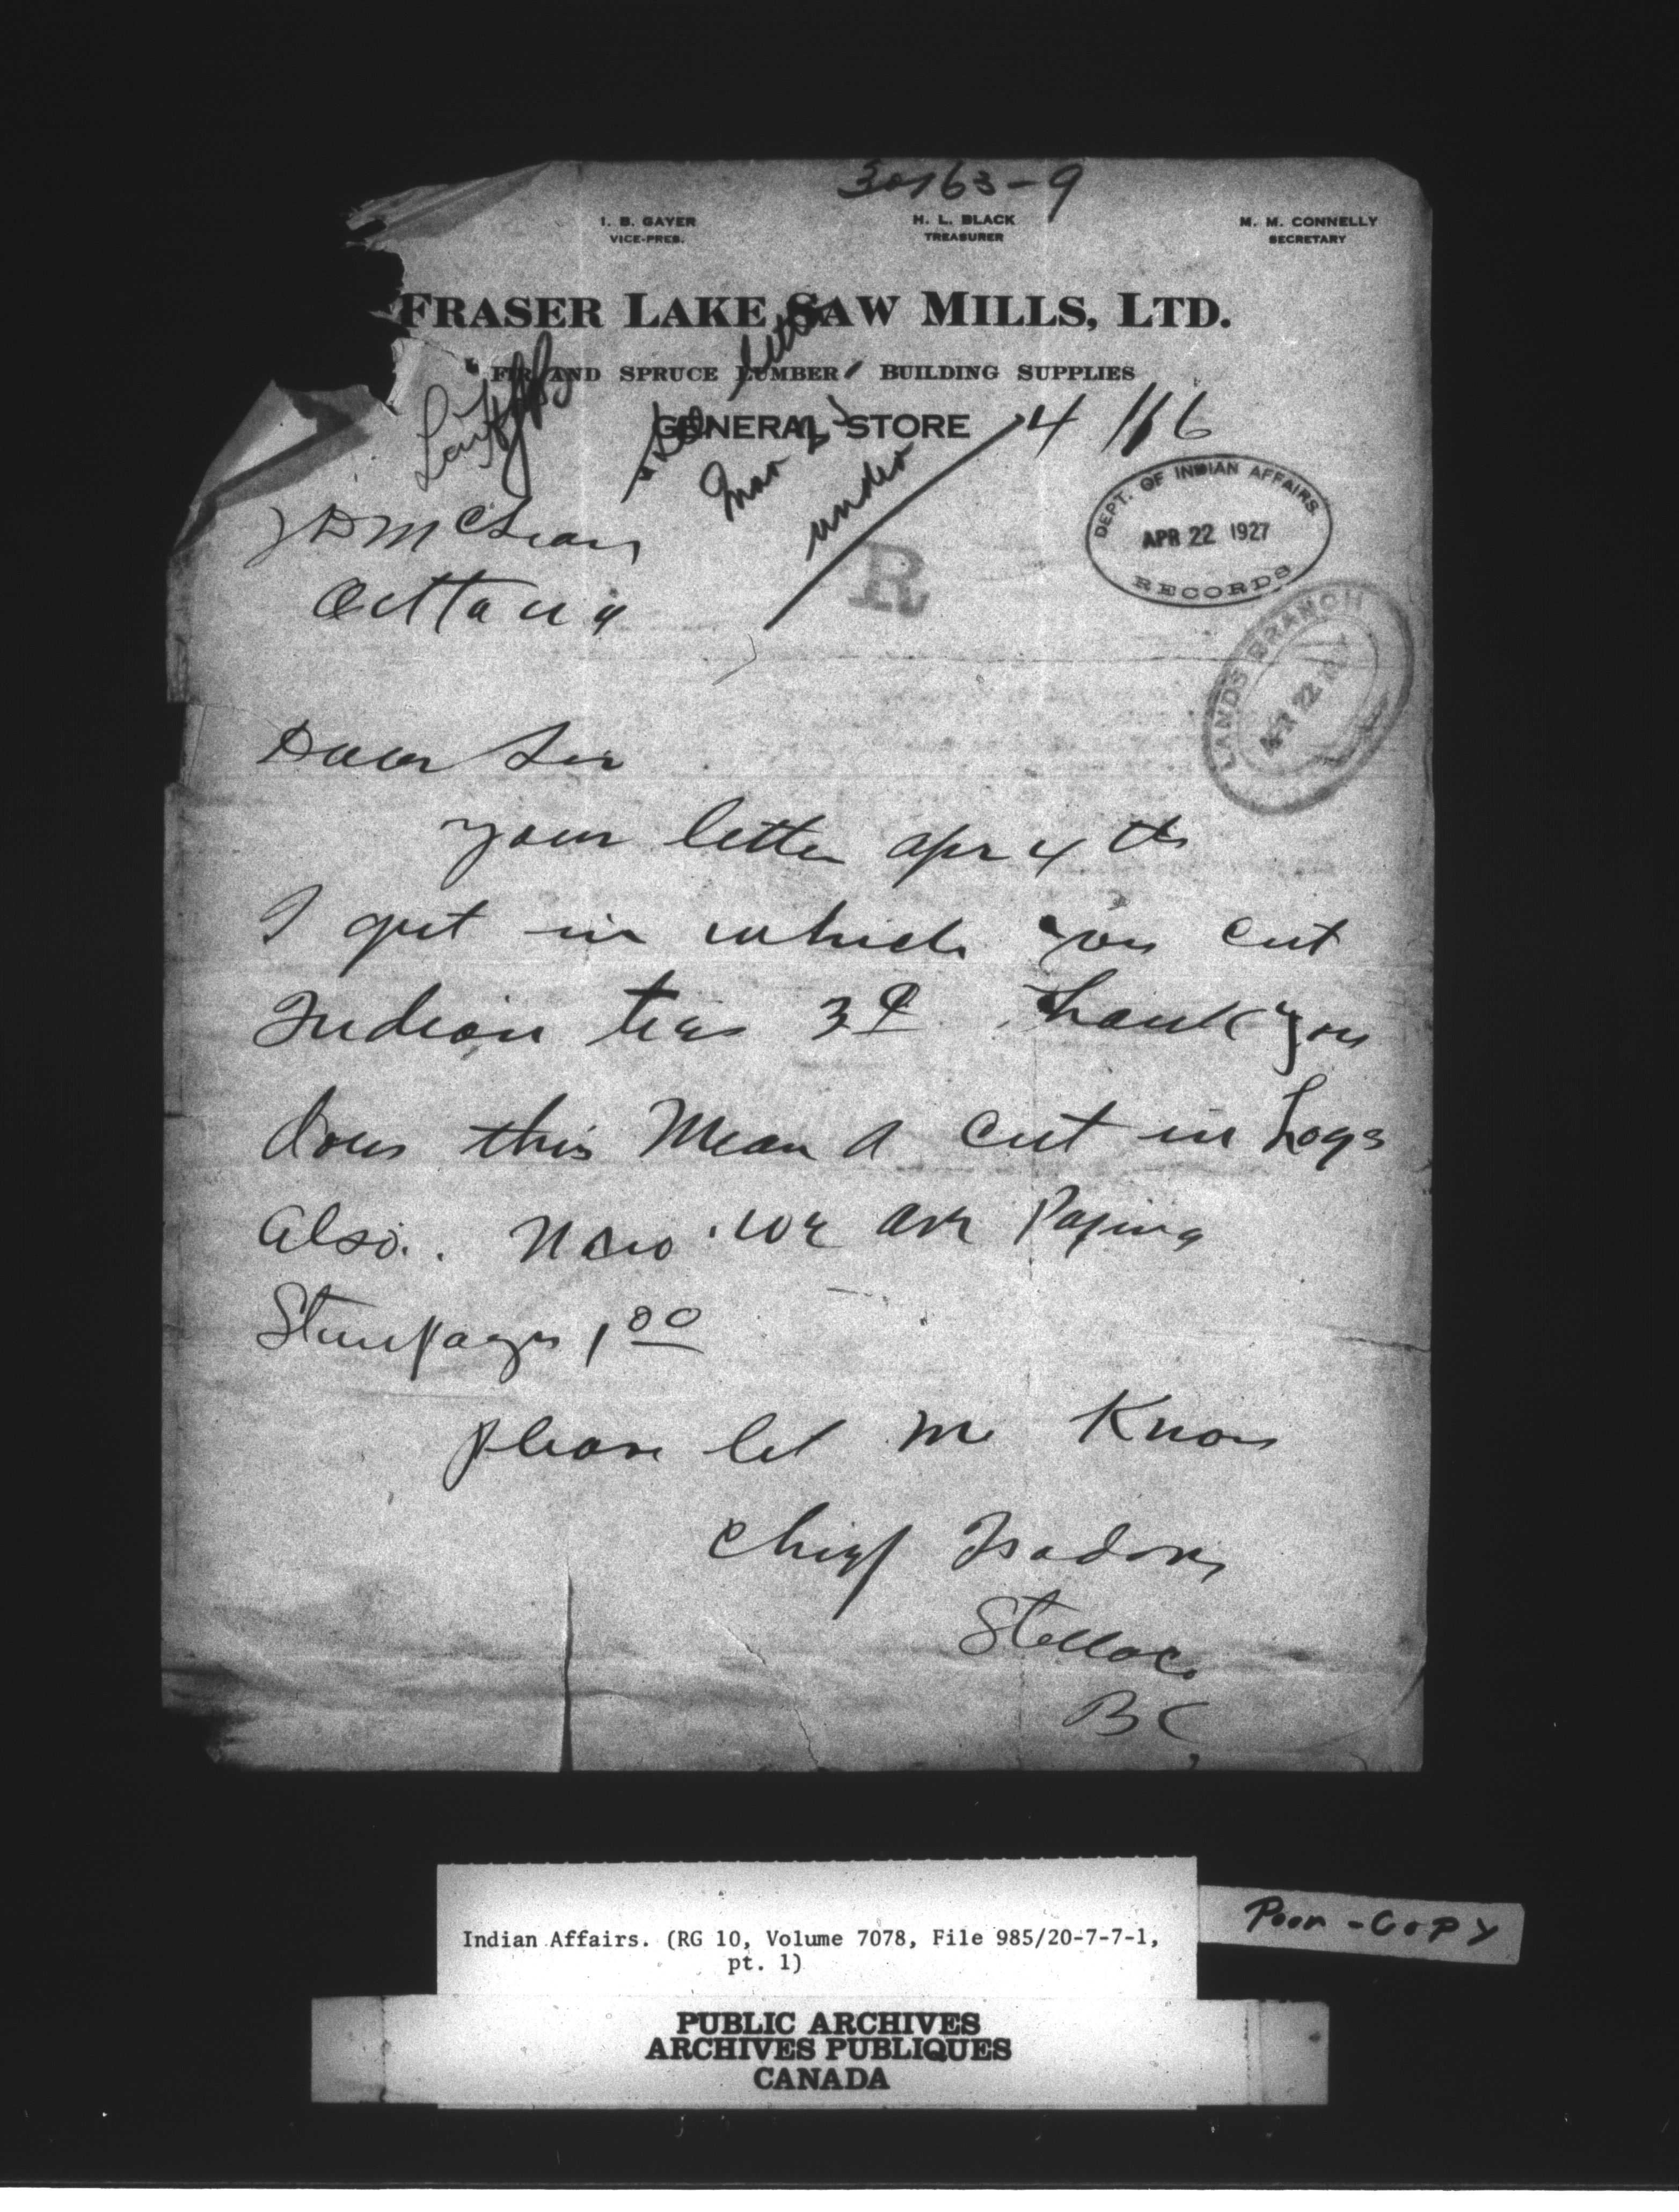 30163-9
I. B. GAYER
VICE-PRES.
H. L. BLACK
TREASURER
M. M. CONNELLY
SECRETARY
FRASER LAKE SAW MILLS, LTD.
FIR AND SPRUCE LUMBER BUILDING SUPPLIES
GENERAL STORE
letter
Mar 2
under
4/16
DEPT. OF INDIAN AFFAIRS.
APR 22 1927
RECORDS
R
LANDS BRANCH
APR 22 1927
J D McLean
Ottawa
Dear Sir
your letter apr 4 th
I got in which you cut
Indian ties 3¢ thank you
does this Mean a cut in Logs
also. Now we are Paying
Stumpage 1.00
please let me Know
Chief Isadore
Stellaco
BC
Indian Affairs. (RG 10, Volume 7078, File 985/20-7-7-1,
pt. 1)
Poor-Copy
PUBLIC ARCHIVES
ARCHIVES PUBLIQUES
CANADA